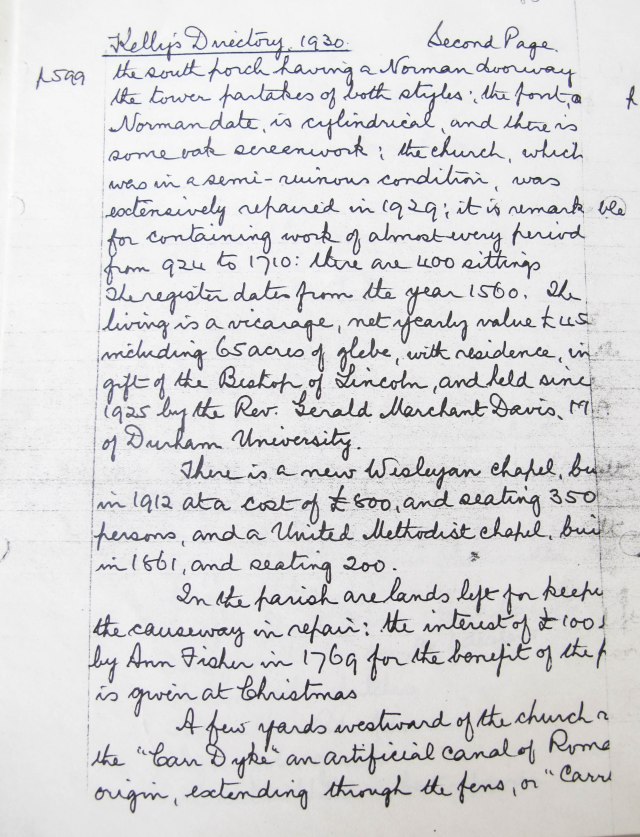 Kelly's Directory. 1930. Second Page.
p599 the south porch having a Norman doorway
the tower partakes of both styles; the font, o
Norman date, is cylindrical, and there is
some oak screenwork; the church, which
was in a semi-ruinous condition, was
extensively repaired in 1929; it is remarkble
for containing work of almost every period
from 924 to 1710: there are 400 sittings
The register dates from the year 1560. The
living is a vicarage, net yearly value £45
including 65 acres of glebe, with residence, in
gift of the Bishop of Lincoln, and held since
1925 by the Rev. Gerald Marchant Davis. M
of Durham University.
There is a new Wesleyan chapel, built
in 1912 at a cost of £800, and seating 350
persons, and a United Methodist chapel, built
in 1861, and seating 200.
In the parish are lands left for keepi
the causeway in repair: the interest of £100
by Ann Fisher in 1769 for the benefit of the p
is given at Christmas
A few yards westward of the church
the "Carr Dyke" an artificial canal of Roma
origin, extending through the fens, or "Carr